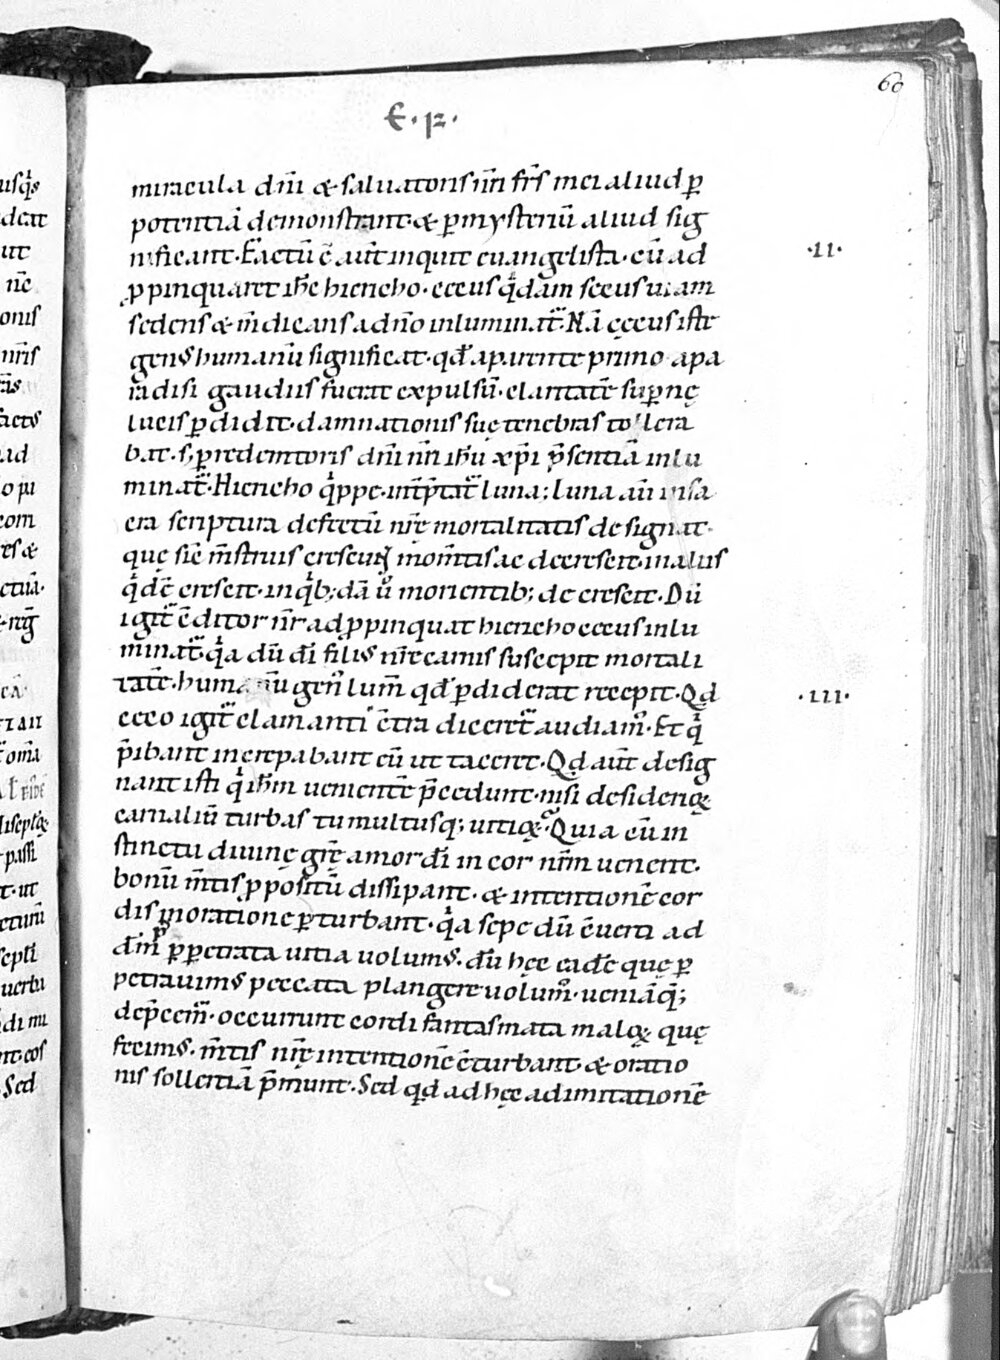 60
E · R ·
miracula dn̄i & saluatoris nr̄i fr̄s mei aliud ꝑ
potentiā demonstrant · & ꝑ mysteriū aliud sig
nificant · Factū ē aut̄ inquit euangelista · cū ad
·II·
ꝓpinquaret ihc hiericho · cecus qͥdam secus uiam
sedens & m̄dicans ad n̄o inluminat᷑ · Nā cecus iste
genus humanū significat · qd̄ aparente primo a pa
radisi gaudiis fuerat expulsū · claritatē suꝑnę
lucis ꝑdidit · damnationis suę tenebras tollera
bat · s; ꝑ redemtoris dn̄i nr̄i ihū xp̄i p̄sentiā inlu
minat᷑ · Hiericho qͥppe · int̄p̄tat᷑ luna; luna aut̄ in sa
cra scriptura defectū nr̄ę mortalitatis designat ·
quę sic m̄struis crescit momtis ac decrescit · in aliis
qͥdē crescit · in qͥb; dā u̾o morientib; decrescit · Dū
igit᷑ cditor nr̄ adꝓpinquat hiericho cecus inlu
minat᷑ · qͥa dū dī filius nr̄e carnis suscepit mortali
tatē · humanū gen̾ lum̄ qd̄ ꝑdiderat recepit · Qd
·III·
ceco igit᷑ clamanti c̄tra diceret᷑ audiam̾ · Et qͥ
p̄ibant increpabant eū ut taceret · Qd aut̄ desig
nant isti qͥ ihm̄ uenientē p̄cedunt · nisi desiderioꝝ
carnaliū turbas tumultusq; uitioꝝ · Qui a cū in
stinctu diuinę gr̄ę amor dī in cor nr̄m uenerit ·
bonū m̄tis ꝓpositū dissipant · & intentionē cor
dis in oratione ꝑturbant · qͥa sepe dū c̄uerti ad
dn̄m p̄ ꝑpetrata uitia uolumus · dū hęc eadē quę ꝑ
petrauimus peccata plangere uolum̾ · ueniāq;
dep̄cem᷑ · occurrunt cordi fantasmata maloꝝ quę
fecimus · m̄tis nr̄ę intentionē c̄turbant · & oratio
nis sollertiā p̄munt · Sed qd ad hęc ad imitationē